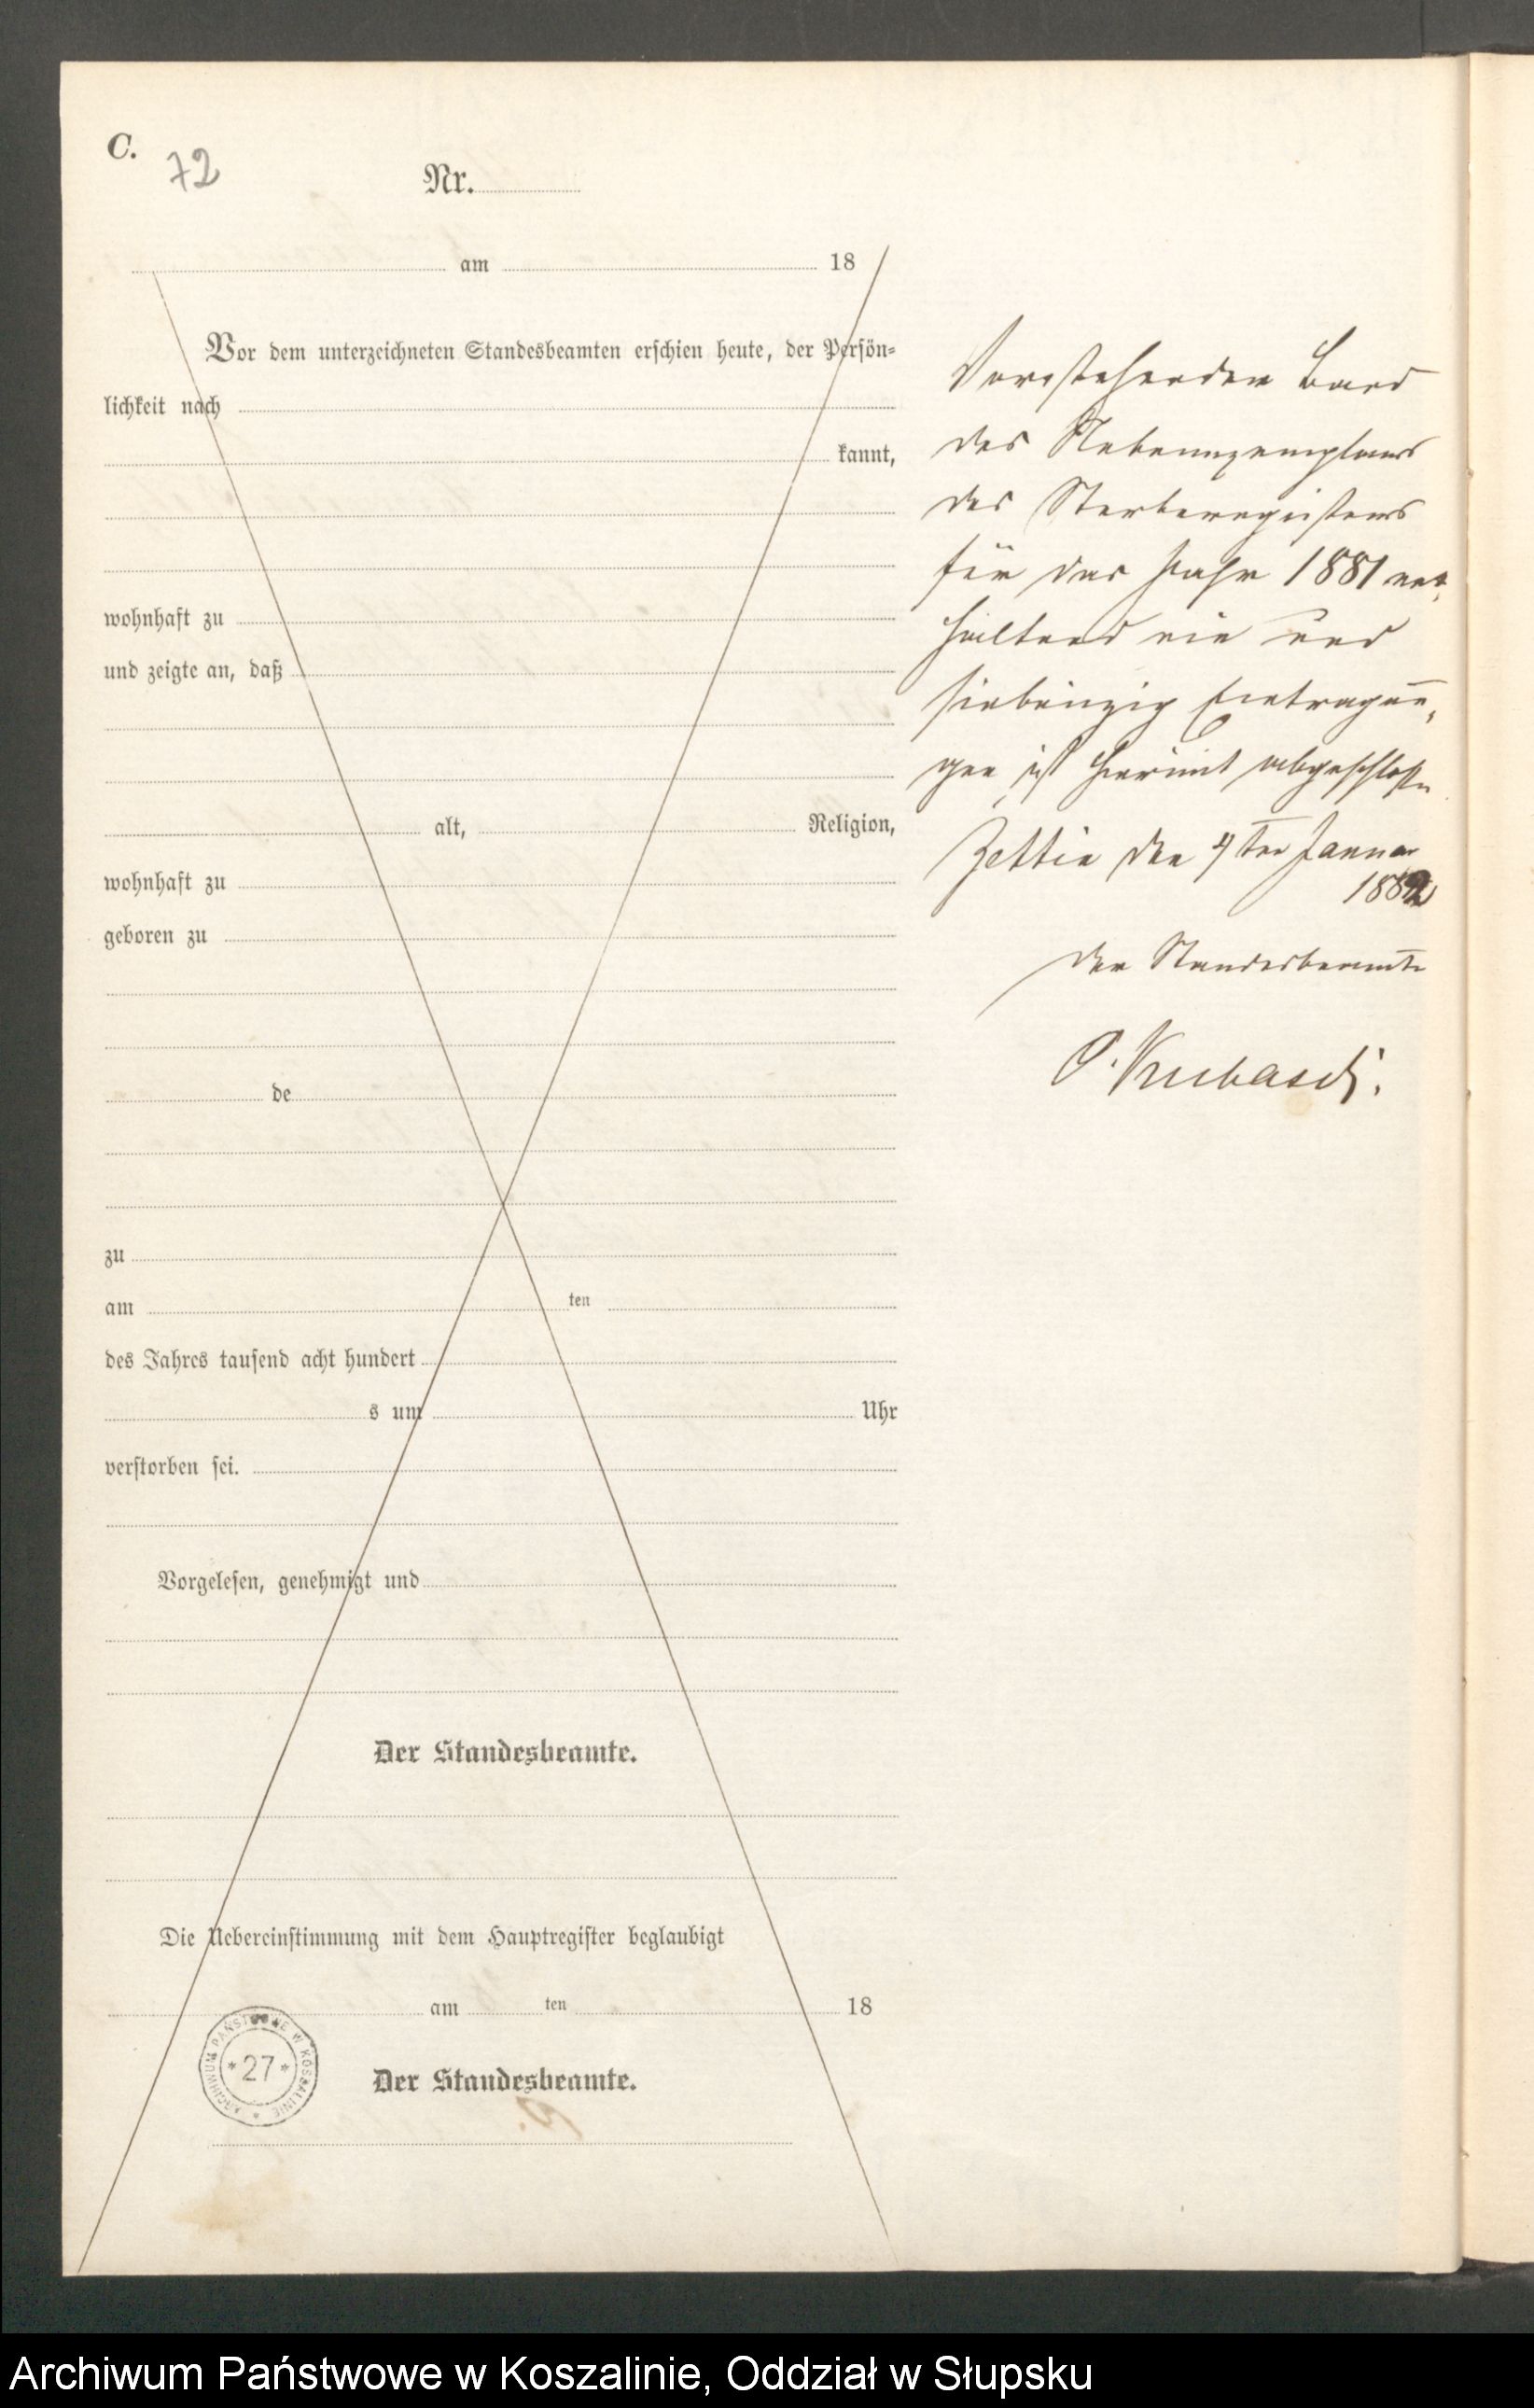 C.
72
Nr.
am 18
Vor dem unterzeichneten Standesbeamten erschien heute, der Persön-
lichkeit nach
kannt,
wohnhaft zu
und zeigte an, daß
alt, Religion,
wohnhaft zu
geboren zu
de
zu
am ten
des Jahres tausend acht hundert
s um Uhr
verstorben sei.
Vorgelesen, genehmigt und
Der Standesbeamte.
Die Uebereinstimmung mit dem Hauptregister beglaubigt
am ten 18
Der Standesbeamte.
ARCHIWUM PAŃSTWOWE W KOSZALINIE
*27*
Vorstehender Band
des Nebenexemplars
des Sterberegisters
für das Jahr 1881 ent-
haltend ein und
siebenzig Eintragun-
gen ist hiermit abgeschlossen
Zettin den 4ten Januar
1882
Der Standesbeamte
Archiwum Państwowe w Koszalinie, Oddział w Słupsku